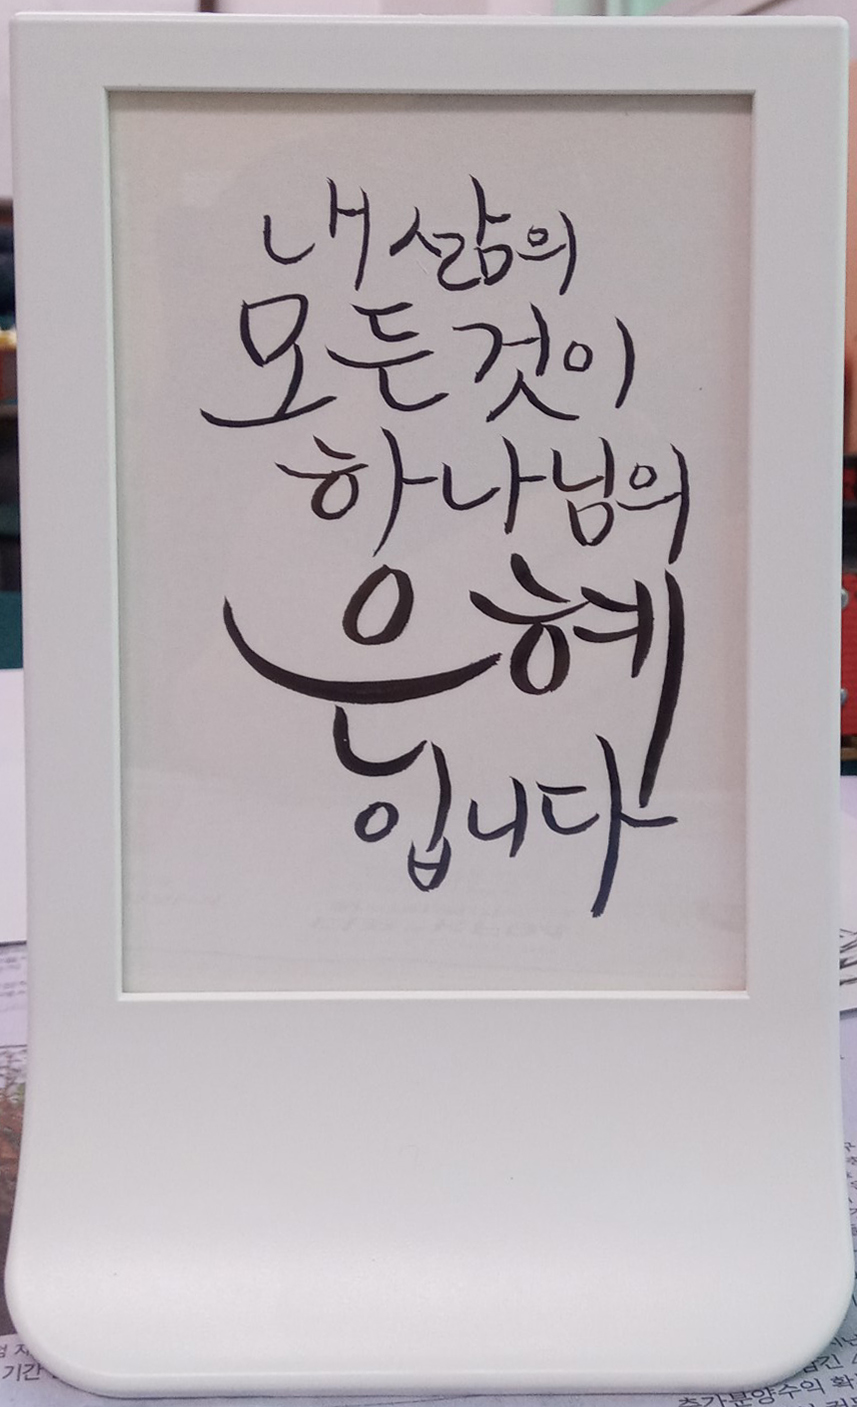 내 삶의
모든 것이
하나님의
은혜
입니다
기간
추가분양수의 확